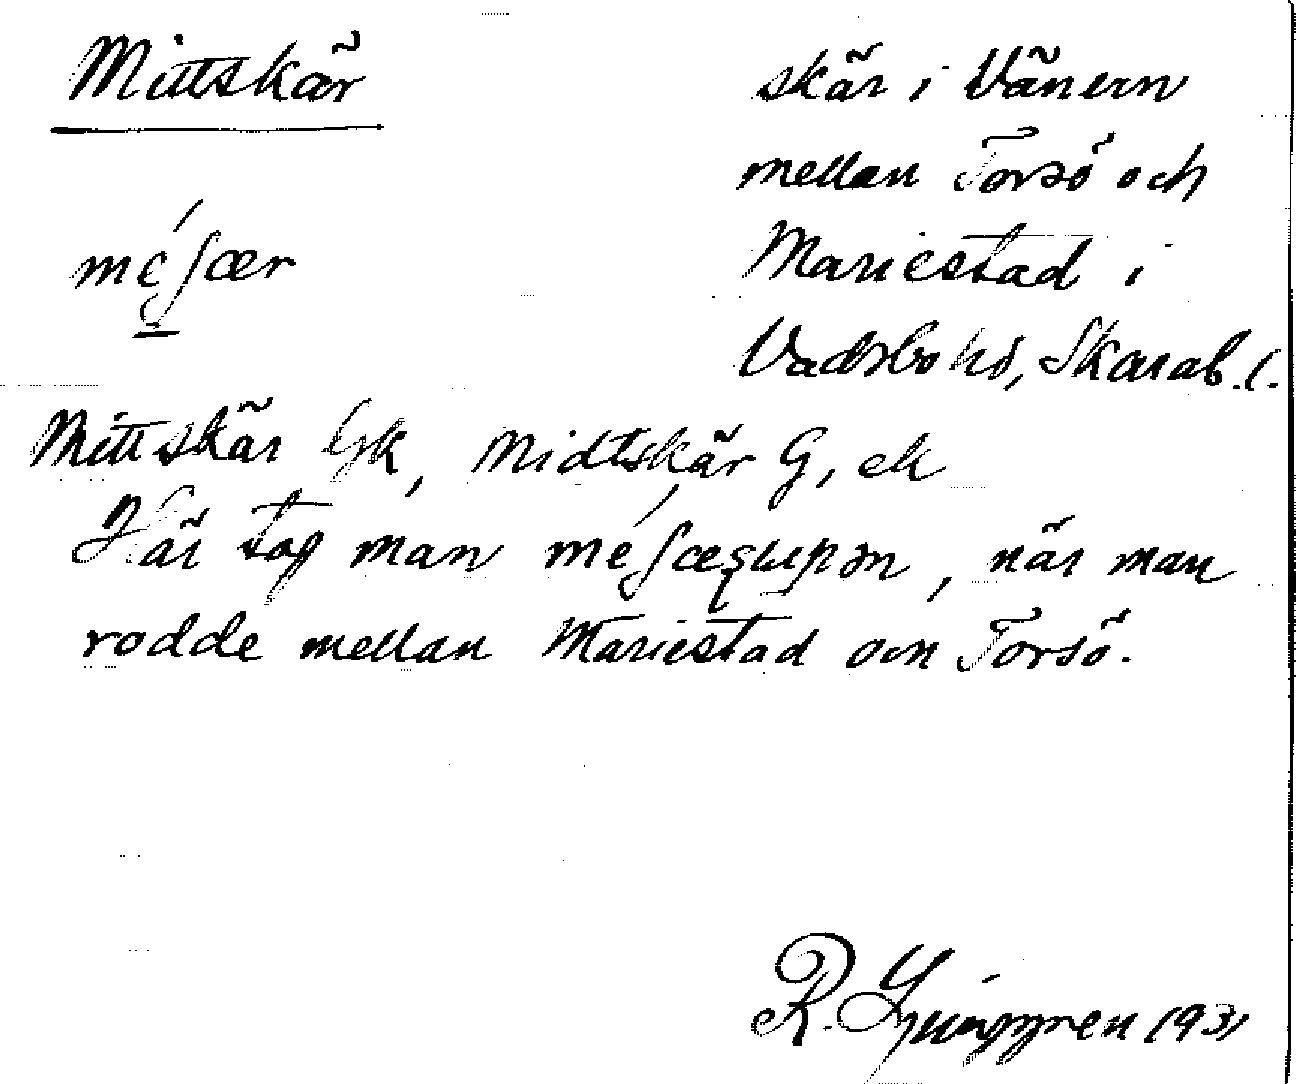 Mittskär
skär i Vänern
mellan Torsö och
Mariestad i
Vadsbo hd, Skarab. l.
méʃær
Mittskär Gk, Midtskär G, ek
Här tog man méʃæsupən, när man
rodde mellan Mariestad och Torsö.
R. Ljunggren 1931